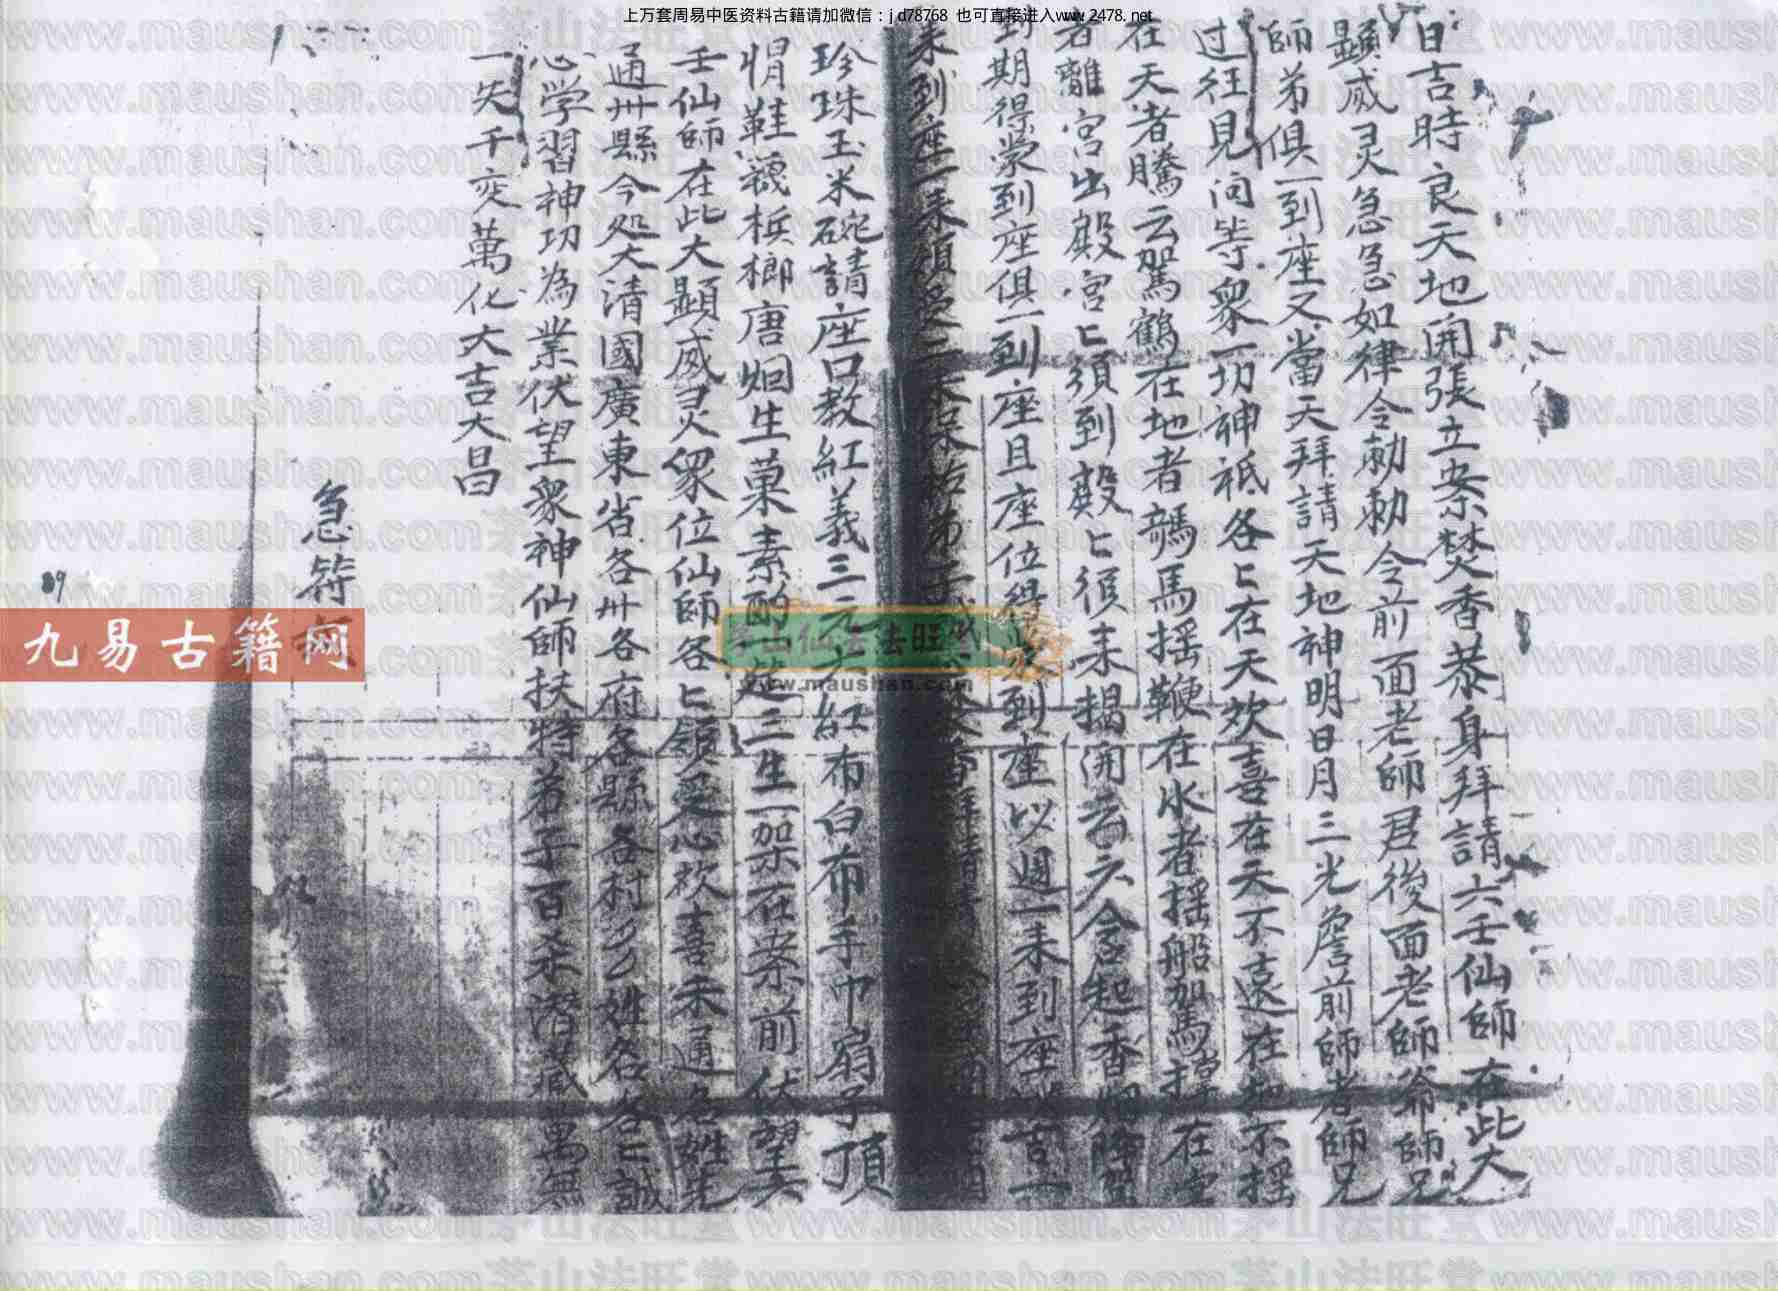 上万套周易中医资料古籍请加微信：jd78768 也可直接进入www.2478.net
日吉時良天地開張立案焚香恭身拜請六壬仙師在此大
顯威灵急急如律令勅勅令前面老師君後面老師爺師兄
師弟俱一到座又當天拜請天地神明日月三光詹前師者師兄
过往見间等衆一切神祗各匕在天欢喜在天不遠在地不摇
在天者騰云駕鶴在地者騎馬摇鞭在水者摇船駕馬掌在宮
者離宮出殿宮匕須到殿匕須耒揭開云六合起香烟降
到期得蒙到座俱一到座且座位得 到座以週一耒到座 一
耒到座一耒領受二耒保 弟子
珍珠玉米碗請座口教紅義三元六紅布白布手巾扇子頂
帽鞋襪梹榔唐烟生菓素酌 筵三生一架在案前伏望六
壬仙師在此大顯威灵眾位仙師各匕領受心欢喜耒通名姓先
通州縣今処大清國廣東省各州各府各縣各村 姓名各匕誠
心学習神功為業伏望衆神仙師扶持弟子百 潜藏萬無
一失千変萬化大吉大昌
急符
89
九易古籍网
茅山仙法法旺堂
www.maushan.com